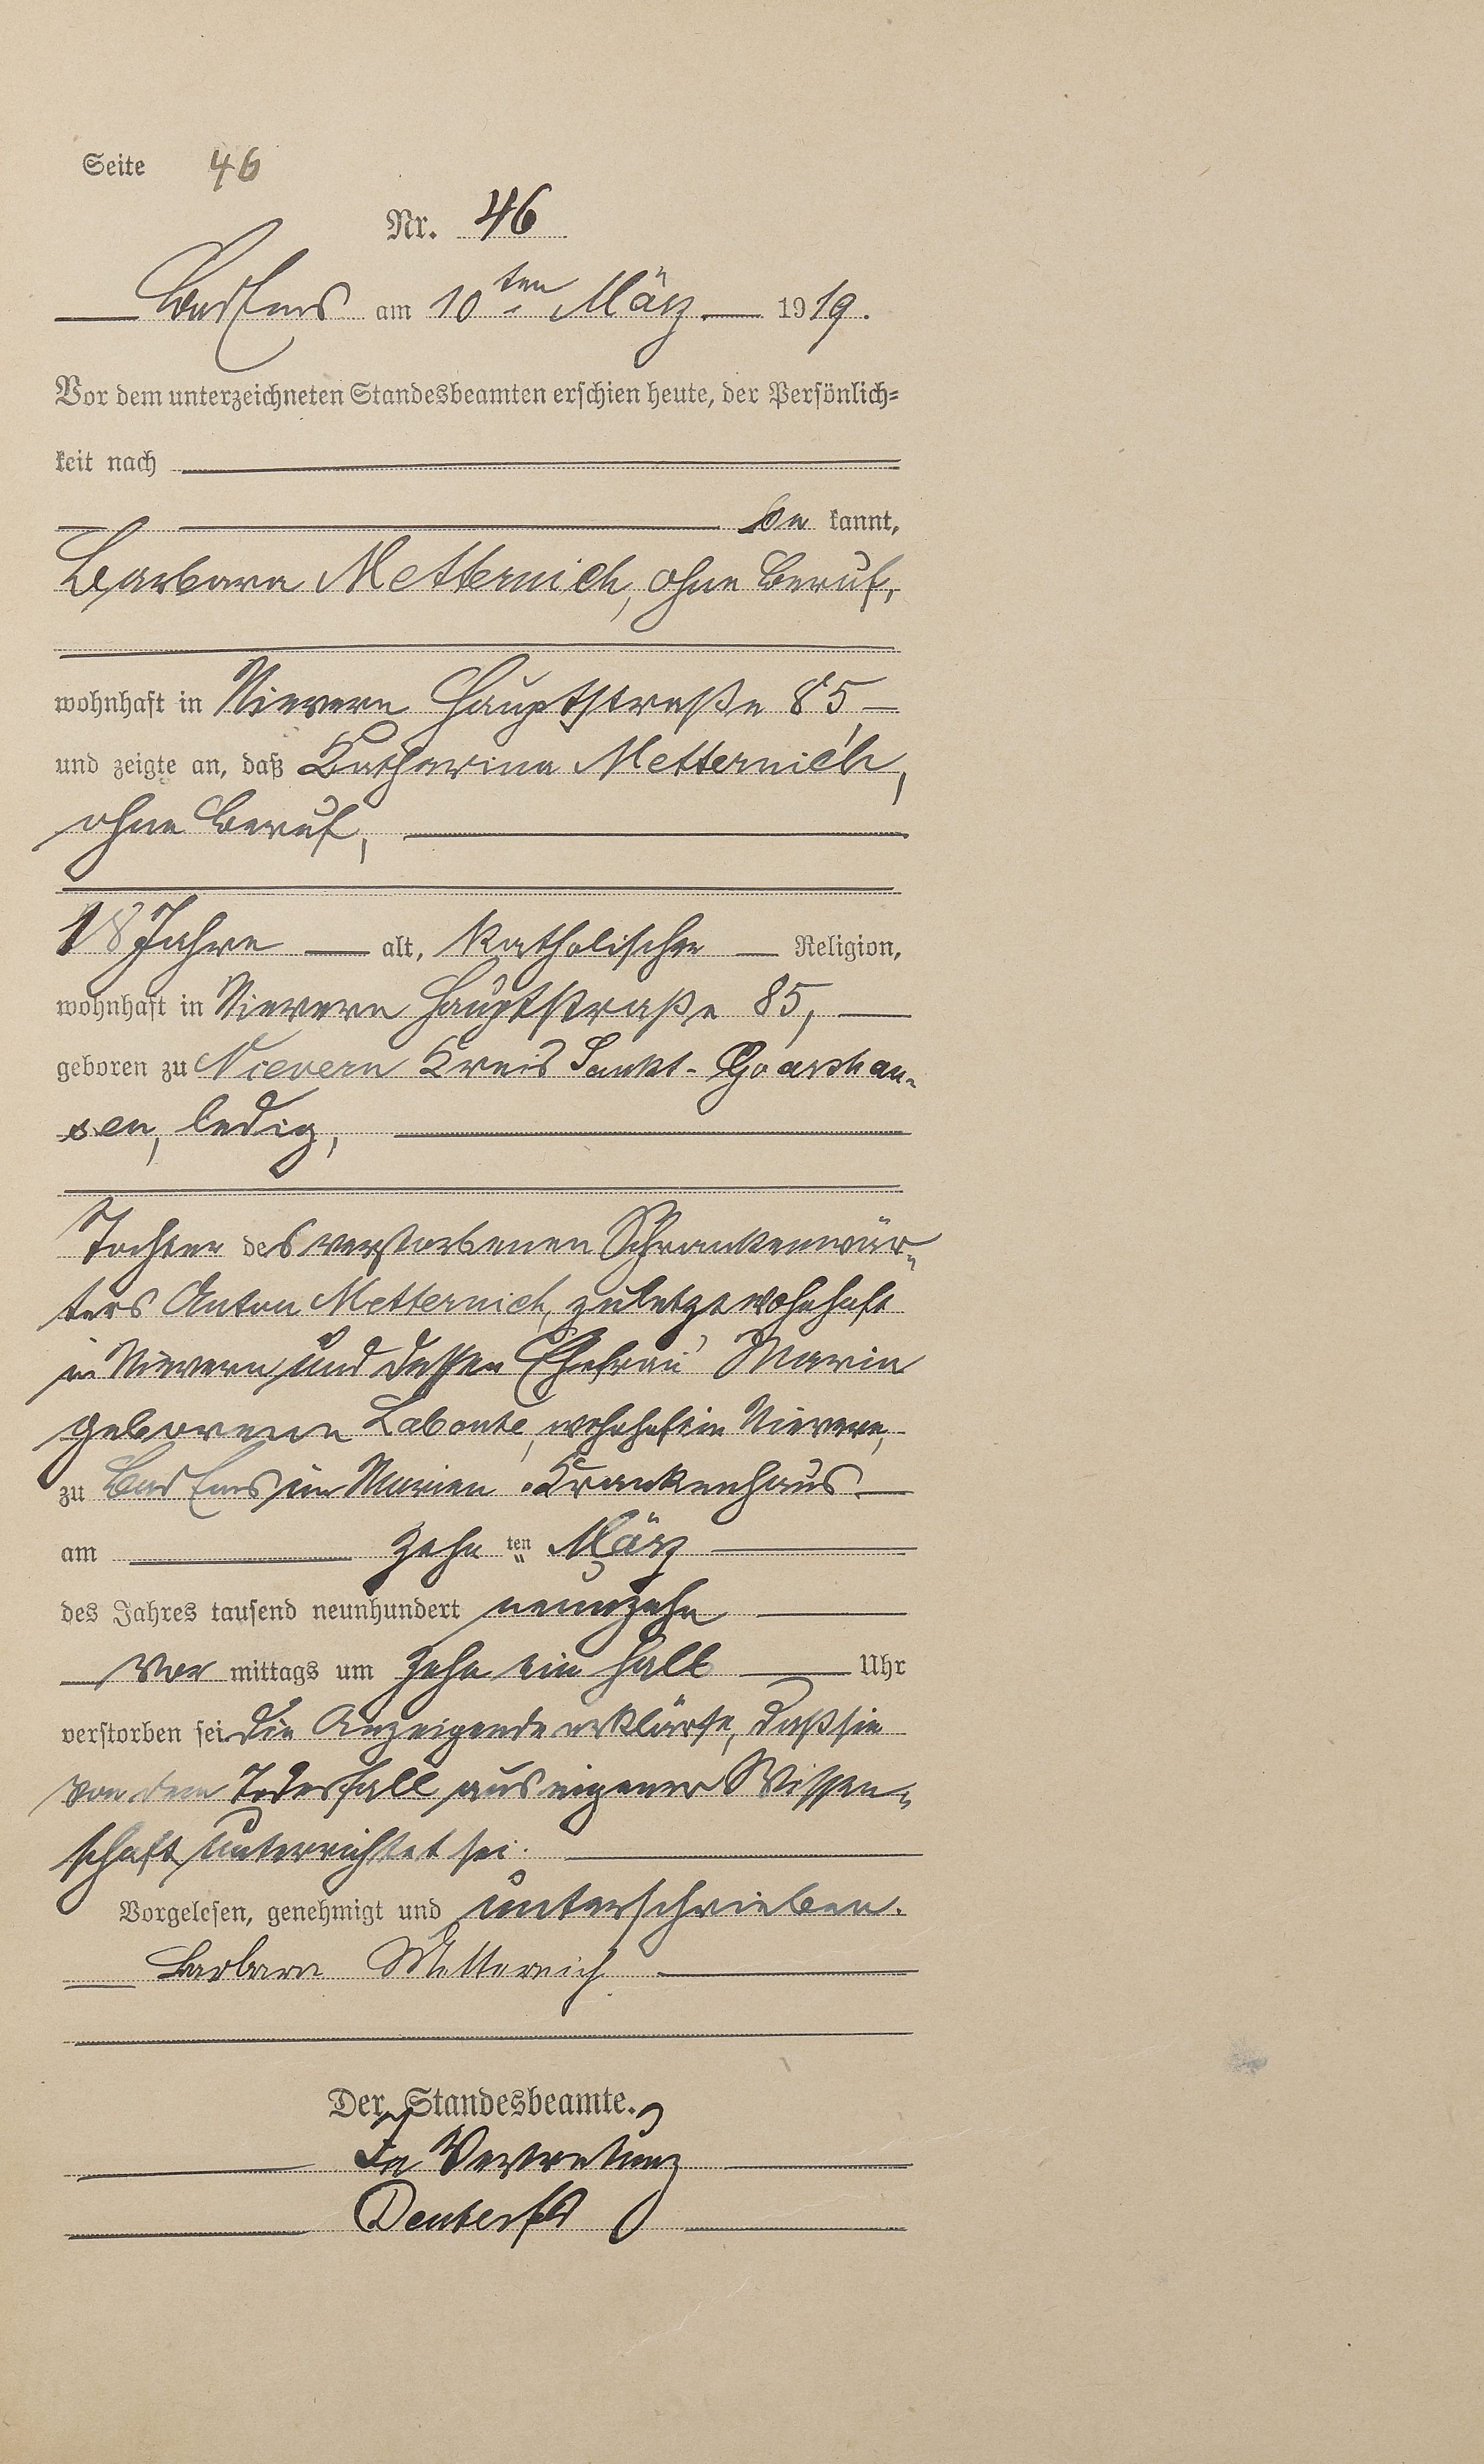 Seite 46
Nr. 46
Bad Ems am 10ten März 1919.
Vor dem unterzeichneten Standesbeamten erschien heute, der Persönlich-
keit nach
be kannt,
Barbara Metternich, ohne Beruf,
wohnhaft in Nievern Hauptstraße 85,
und zeigte an, daß Katharina Metternich,
ohne Beruf,
18 Jahre alt, katholischer Religion,
wohnhaft in Nievern Hauptstraße 85,
geboren zu Nievern Kreis Sankt-Goarshau-
sen, ledig,
Tochter des verstorbenen Schrankenwär-
ters Anton Metternich, zuletzt wohnhaft
in Nievern, und dessen Ehefrau Maria
geborene Labonte, wohnhaft in Nievern,
zu Bad Ems im Marien-Krankenhaus
am zehn ten März
des Jahres tausend neunhundert neunzehn
Vor mittags um zehn ein halb Uhr
verstorben sei. Die Anzeigende erklärte, daß sie
von dem Todesfall aus eigener Wissen-
schaft unterrichtet sei.
Vorgelesen, genehmigt und unterschrieben.
Barbara Metternich
Der Standesbeamte.
In Vertretung